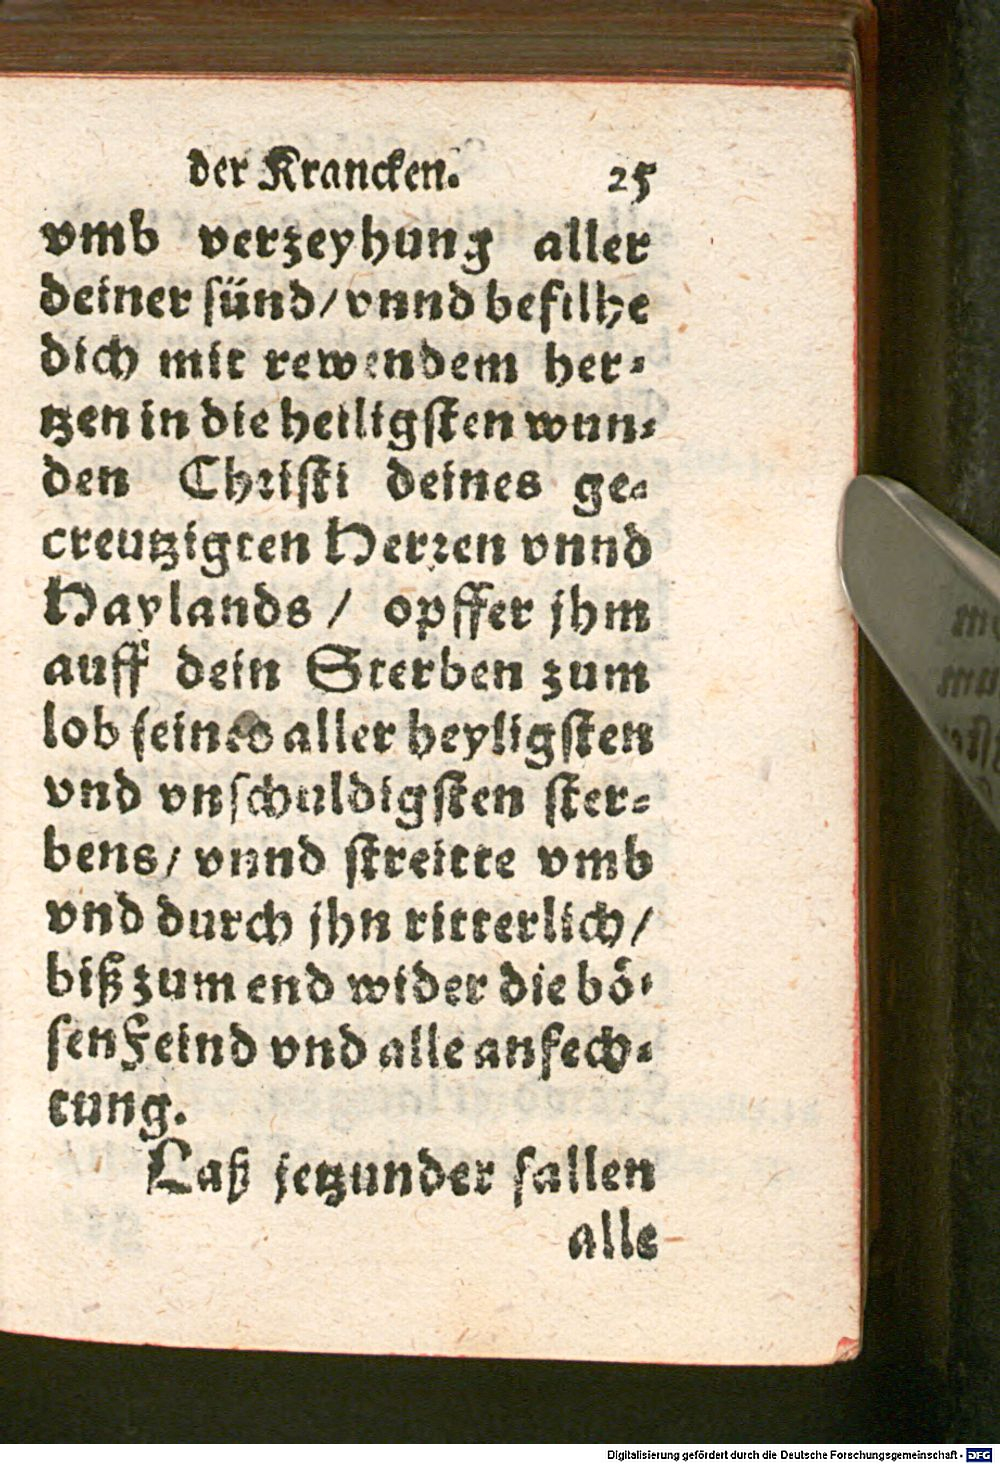 der Krancken. 25
vmb verzeyhung aller
deiner sünd/ vnnd befilhe
dich mit rewendem her-
tzen in die heiligsten wun-
den Christi deines ge-
creutzigten Herren vnnd
Haylands / opffer jhm
auff dein Sterben zum
lob seines aller heyligsten
vnd vnschuldigsten ster-
bens/ vnnd streitte vmb
vnd durch jhn ritterlich/
biß zum end wider die bö-
sen Feind vnd alle anfech-
tung.
Laß jetzunder fallen
alle
Digitalisierung gefördert durch die Deutsche Forschungsgemeinschaft - DFG